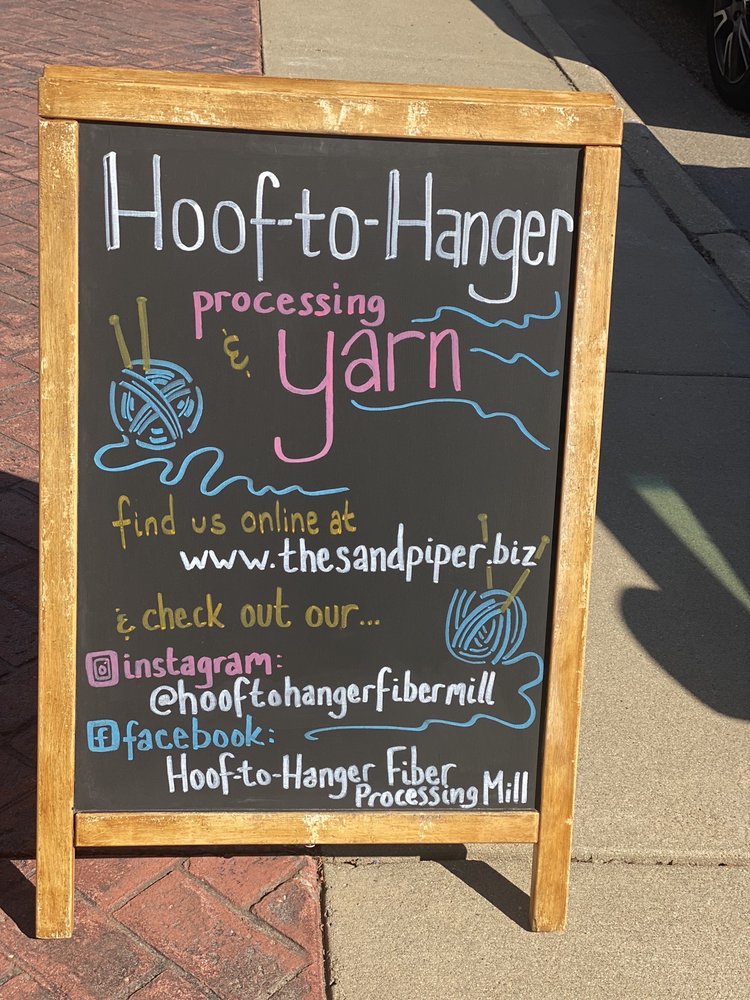 Hoof-to-Hanger
processing
& yarn
find us online at
www.thesandpiper.biz
& check out our...
instagram:
@hooftohangerfibermill
facebook:
Hoof-to-Hanger Fiber
Processing Mill